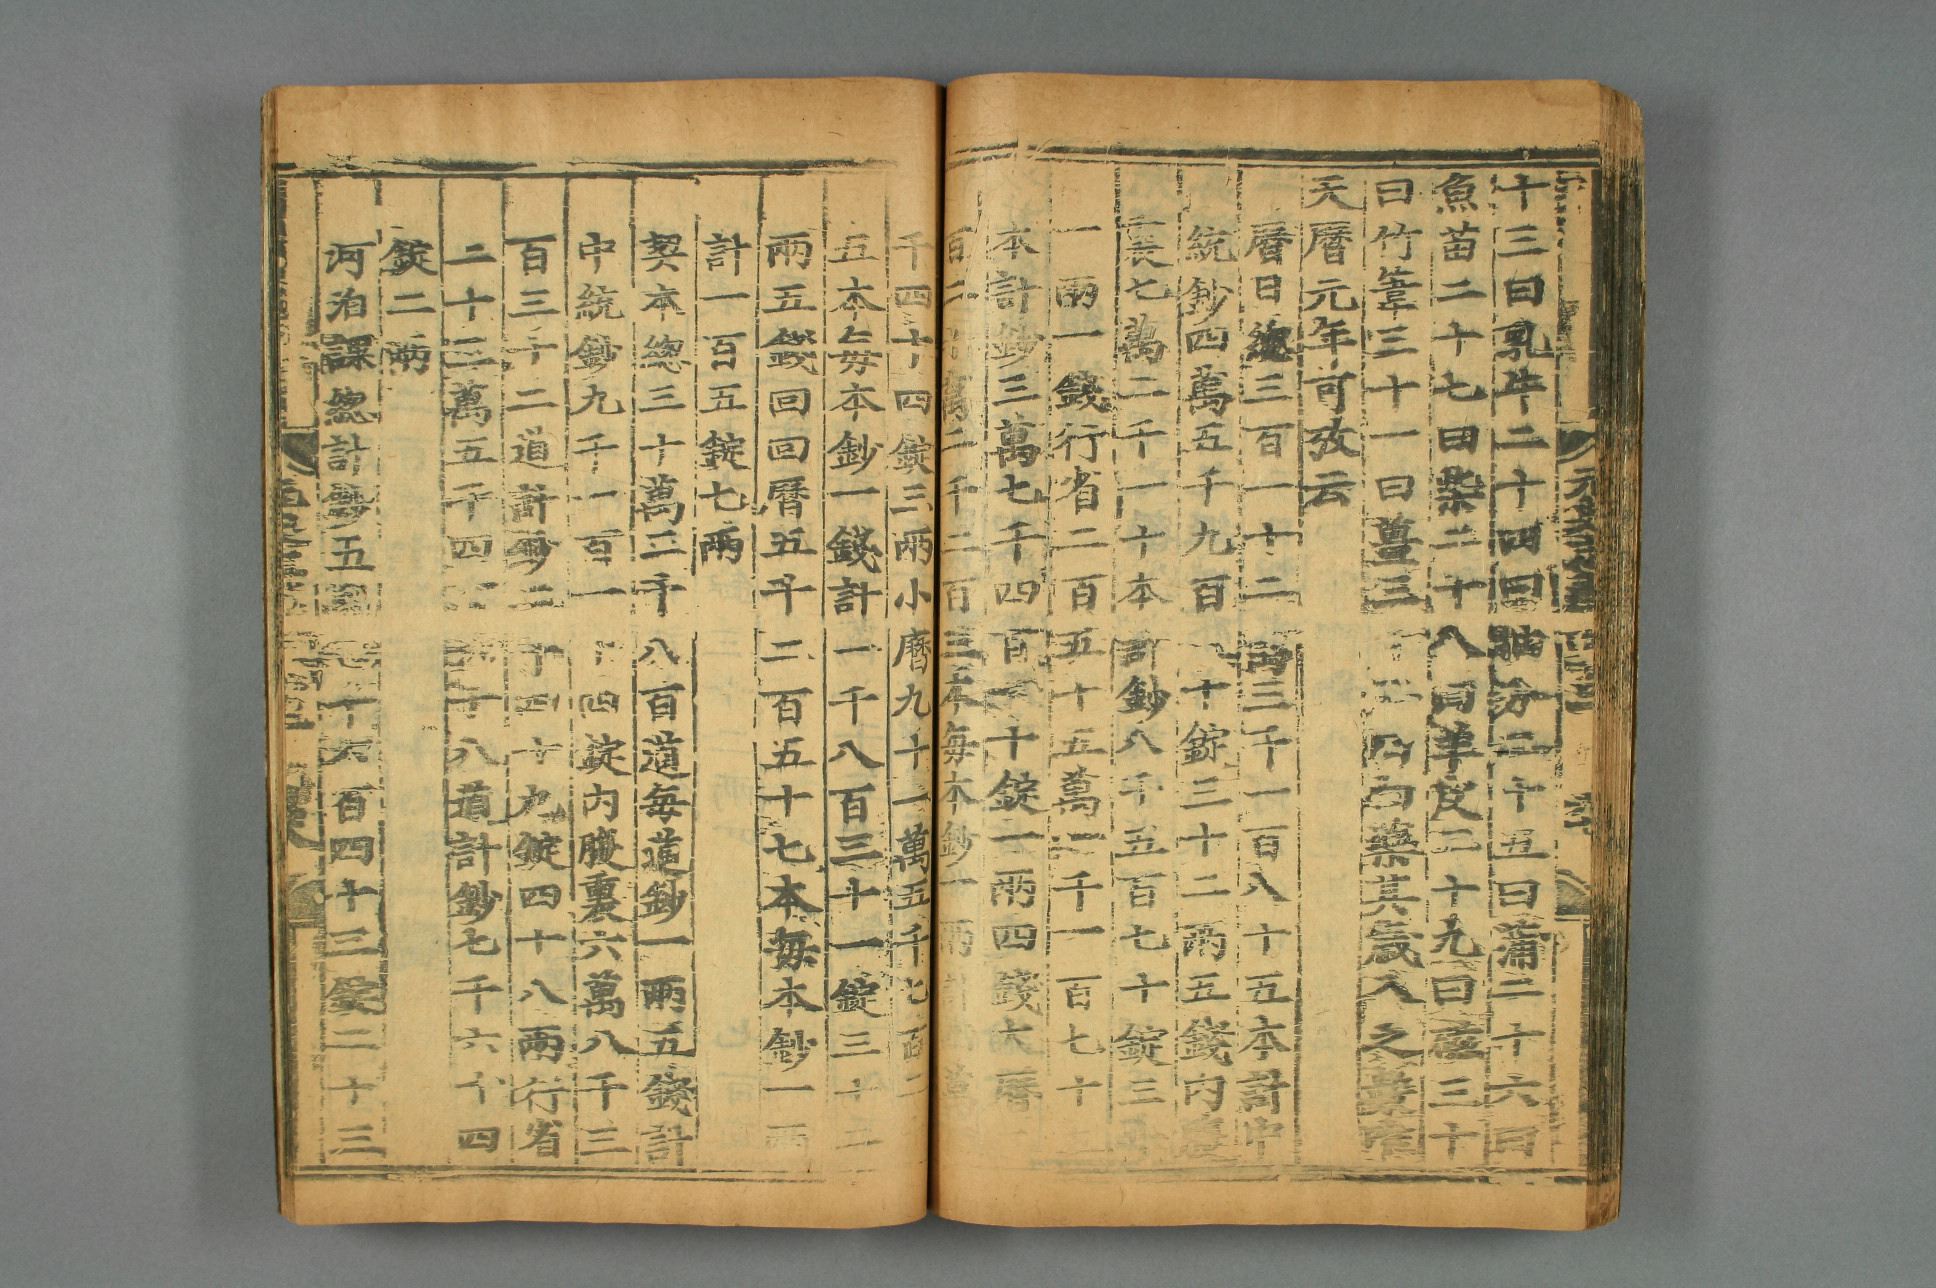 十三曰乳牛二十四曰抽分二十五曰蒲二十六曰
魚苗二十七曰柴二十八曰羊皮二十九曰磁三十
曰竹葦三十一曰薑三十二曰白藥其歲入之數唯
天曆元年可攷云
曆日總三百一十二萬三千一百八十五本計中
統鈔四萬五千九百八十錠三十二兩五錢內腹
裏七萬二千一十本計鈔八千五百七十錠三
一兩一錢行省二百五十五萬一千一百七十
本計鈔三萬七千四百一十錠一兩四錢大曆
百二萬二千二百三本每本鈔一兩計
千四十四錠三兩小曆九十一萬五千七百二
五本每本鈔一錢計一千八百三十一錠三十二
兩五錢回回曆五千二百五十七本每本鈔一兩
計一百五錠七兩
契本總三十萬三千八百道每道鈔一兩五錢計
中統鈔九千一百一十四錠內腹裏六萬八千三
百三十二道計鈔二千四十九錠四十八兩行省
二十三萬五千四百六十八道計鈔七千六十四
錠二兩
河泊課總計鈔五萬七千六百四十三錠二十三